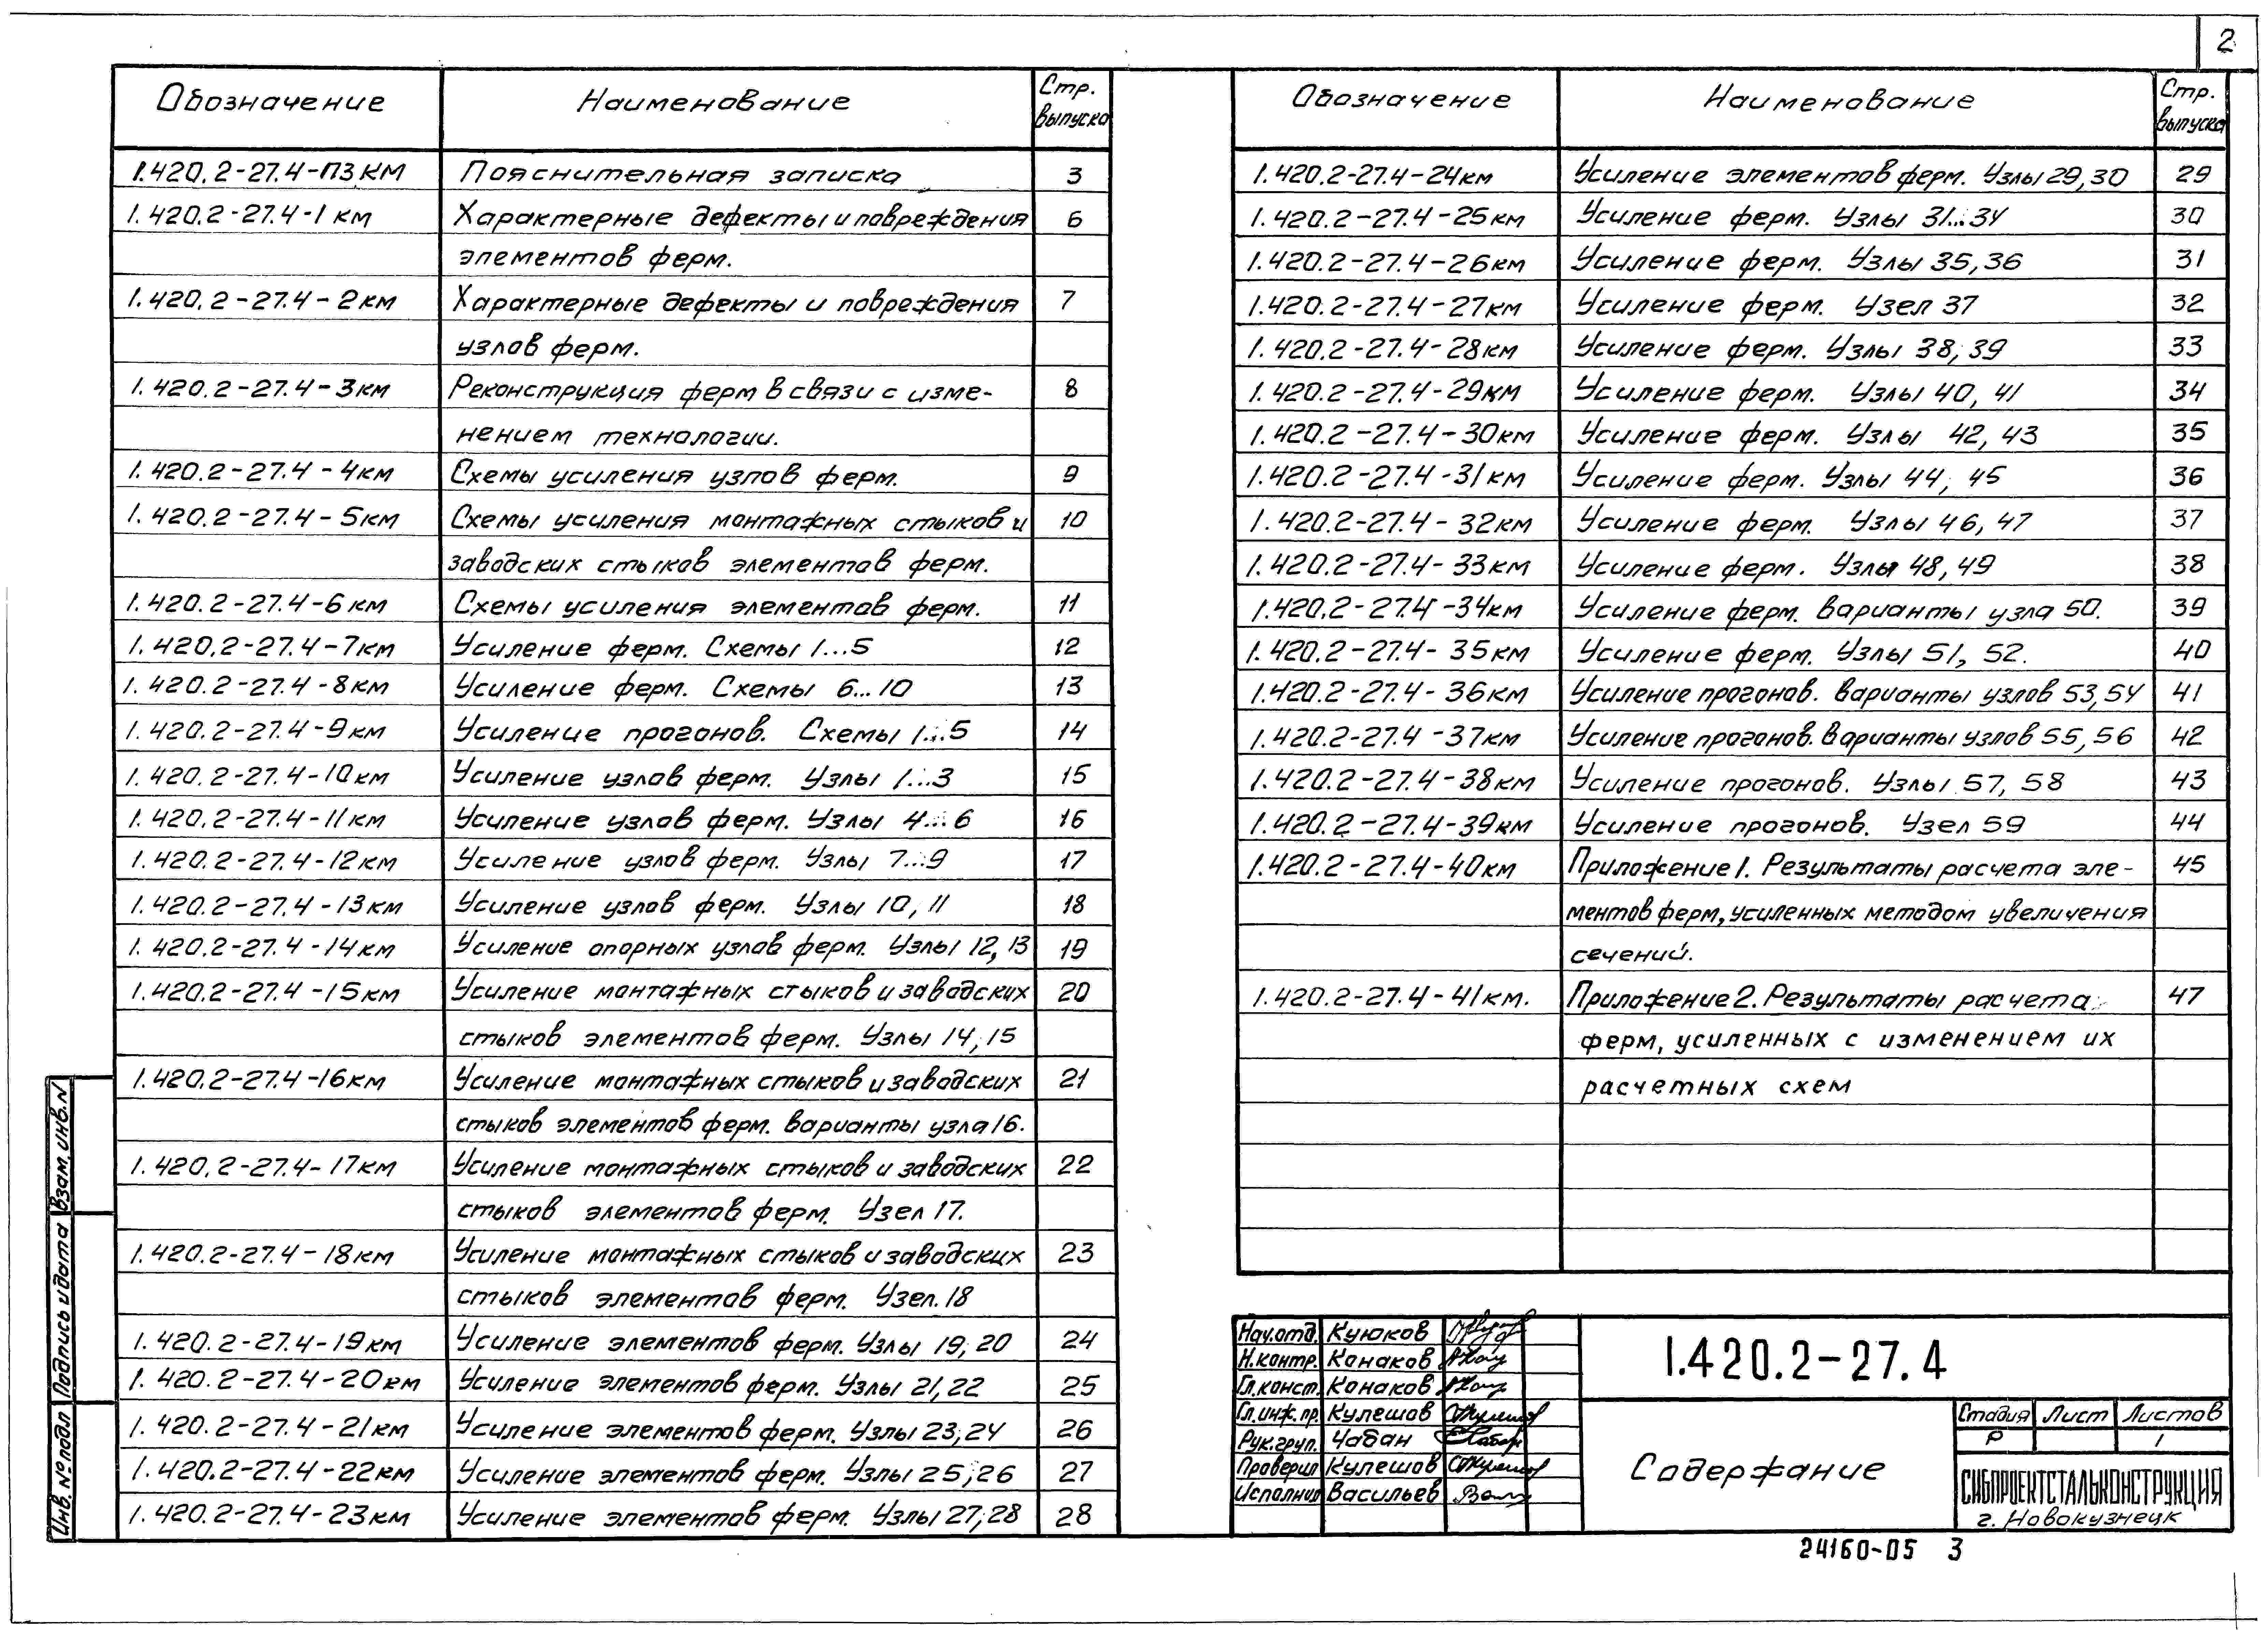 2
Обозначение Наименование Стр. выпуска
1.420.2-27.4-ПЗ КМ Пояснительная записка 3
1.420.2-27.4-1 км Характерные дефекты и повреждения 6
элементов ферм.
1.420.2-27.4-2км Характерные дефекты и повреждения 7
узлов ферм.
1.420.2-27.4-3км Реконструкция ферм в связи с изме- 8
нением технологии.
1.420.2-27.4-4км Схемы усиления узлов ферм. 9
1.420.2-27.4-5км Схемы усиления монтажных стыков и 10
заводских стыков элементов ферм.
1.420.2-27.4-6км Схемы усиления элементов ферм. 11
1.420.2-27.4-7км Усиление ферм. Схемы 1...5 12
1.420.2-27.4-8км Усиление ферм. Схемы 6...10 13
1.420.2-27.4-9км Усиление прогонов. Схемы 1...5 14
1.420.2-27.4-10км Усиление узлов ферм. Узлы 1...3 15
1.420.2-27.4-11км Усиление узлов ферм. Узлы 4...6 16
1.420.2-27.4-12км Усиление узлов ферм. Узлы 7...9 17
1.420.2-27.4-13км Усиление узлов ферм. Узлы 10, 11 18
1.420.2-27.4-14км Усиление опорных узлов ферм. Узлы 12, 13 19
1.420.2-27.4-15км Усиление монтажных стыков и заводских 20
стыков элементов ферм. Узлы 14, 15
1.420.2-27.4-16км Усиление монтажных стыков и заводских 21
стыков элементов ферм. Варианты узла 16.
1.420.2-27.4-17км Усиление монтажных стыков и заводских 22
стыков элементов ферм. Узел 17.
1.420.2-27.4-18км Усиление монтажных стыков и заводских 23
стыков элементов ферм. Узел. 18
1.420.2-27.4-19км Усиление элементов ферм. Узлы 19, 20 24
1.420.2-27.4-20км Усиление элементов ферм. Узлы 21, 22 25
1.420.2-27.4-21км Усиление элементов ферм. Узлы 23, 24 26
1.420.2-27.4-22км Усиление элементов ферм. Узлы 25, 26 27
1.420.2-27.4-23км Усиление элементов ферм. Узлы 27, 28 28
Обозначение Наименование Стр. выпуска
1.420.2-27.4-24км Усиление элементов ферм. Узлы 29, 30 29
1.420.2-27.4-25км Усиление ферм. Узлы 31...34 30
1.420.2-27.4-26км Усиление ферм. Узлы 35, 36 31
1.420.2-27.4-27км Усиление ферм. Узел 37 32
1.420.2-27.4-28км Усиление ферм. Узлы 38, 39 33
1.420.2-27.4-29км Усиление ферм. Узлы 40, 41 34
1.420.2-27.4-30км Усиление ферм. Узлы 42, 43 35
1.420.2-27.4-31км Усиление ферм. Узлы 44, 45 36
1.420.2-27.4-32км Усиление ферм. Узлы 46, 47 37
1.420.2-27.4-33км Усиление ферм. Узлы 48, 49 38
1.420.2-27.4-34км Усиление ферм. Варианты узла 50. 39
1.420.2-27.4-35км Усиление ферм. Узлы 51, 52. 40
1.420.2-27.4-36км Усиление прогонов. Варианты узлов 53, 54 41
1.420.2-27.4-37км Усиление прогонов. Варианты узлов 55, 56 42
1.420.2-27.4-38км Усиление прогонов. Узлы 57, 58 43
1.420.2-27.4-39км Усиление прогонов. Узел 59 44
1.420.2-27.4-40км Приложение 1. Результаты расчета эле- 45
ментов ферм, усиленных методом увеличения
сечений.
1.420.2-27.4-41км. Приложение 2. Результаты расчета 47
ферм, усиленных с изменением их
расчетных схем
Инв. № подл Подпись и дата Взам. инв. N
Нач.отд. Куюков
Н.контр. Конаков
Гл.конст. Конаков
Гл.инж.пр. Кулешов
Рук.груп. Чабан
Проверил Кулешов
Исполнил Васильев
1.420.2-27.4
Содержание
Стадия Лист Листов
Р 1
СИБПРОЕКТСТАЛЬКОНСТРУКЦИЯ
г. Новокузнецк
24160-05 3